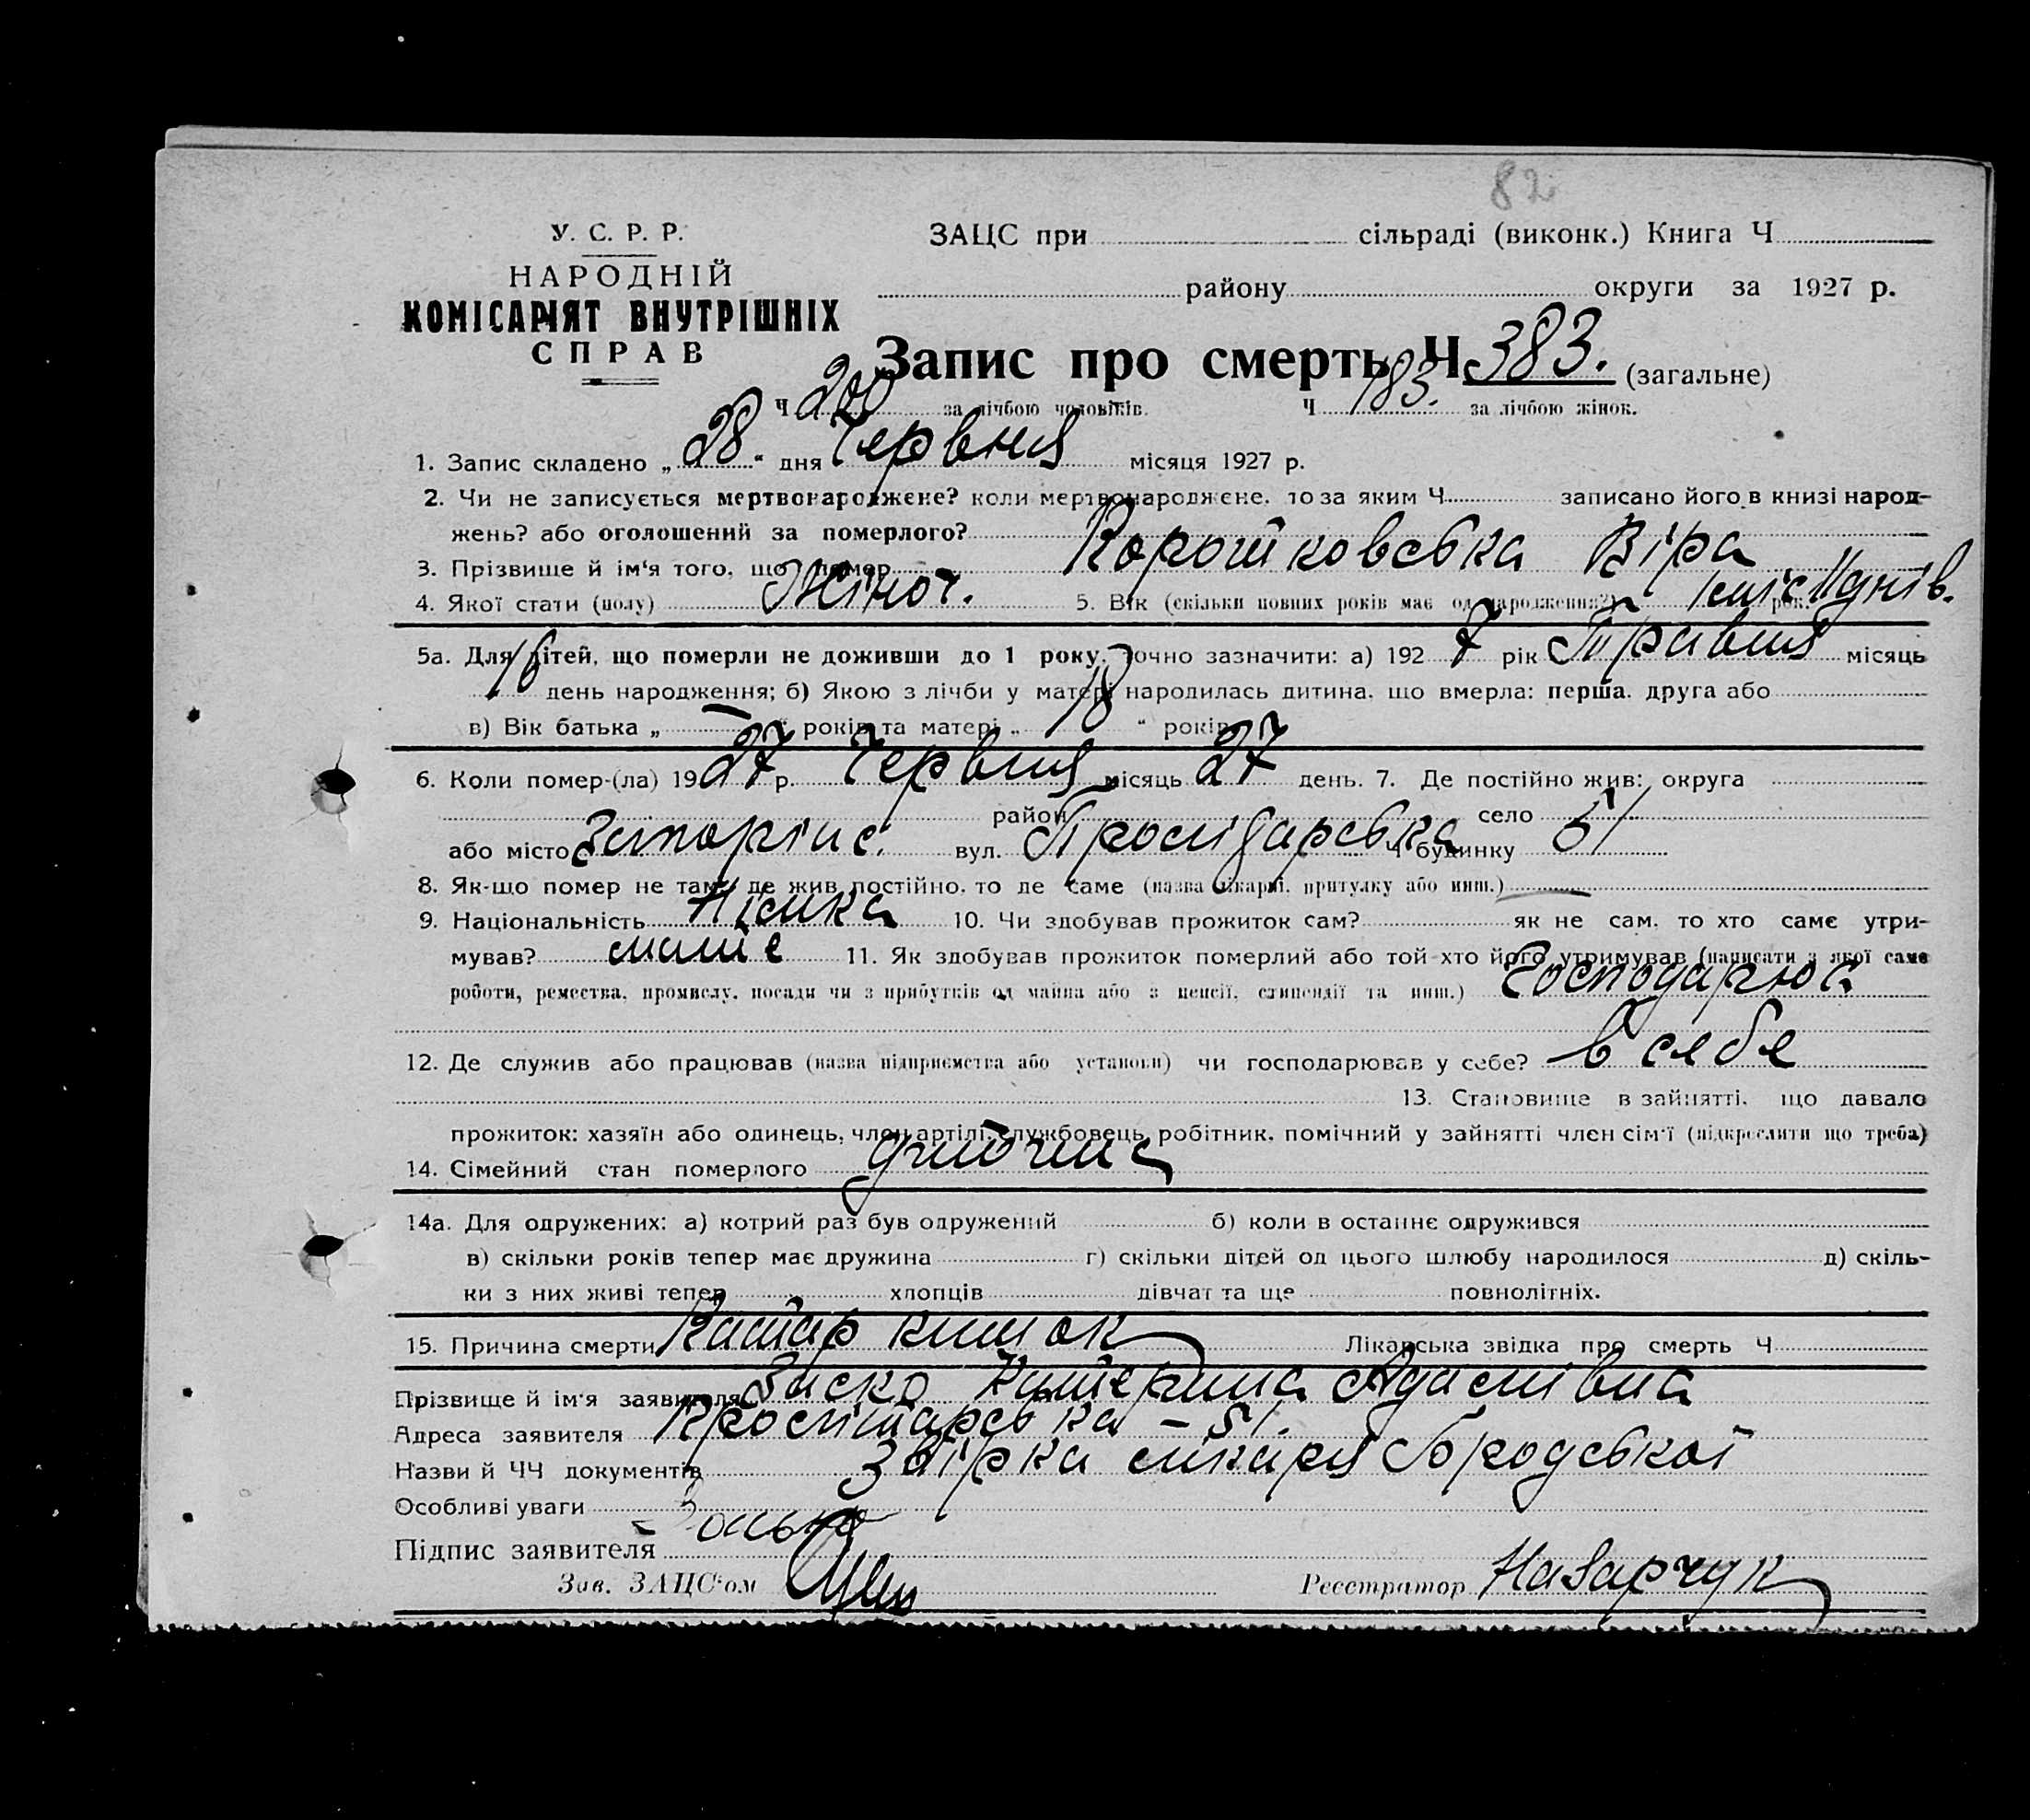 82
У. С. Р. Р.
НАРОДНІЙ
КОМІСАРІЯТ ВНУТРІШНІХ
СПРАВ
ЗАЦС при сільраді (виконк.) Книга Ч
району округи за 1927 р.
Запис про смерть Ч 383. (загальне)
Ч 200 за лічбою чоловіків. Ч 183. за лічбою жінок.
1. Запис складено „28.“ дня Червня місяця 1927 р.
2. Чи не записується мертвонароджене? коли мертвонароджене, то за яким Ч записано його в книзі народ-
жень? або оголошений за померлого?
3. Прізвище й ім'я того, що помер Корошковська Віра
4. Якої стати (полу) Жіноч. 5. Вік (скільки повних років має од народження?) 1 міс 11 днів.
5а. Для дітей, що померли не доживши до 1 року, точно зазначити: а) 1927 рік Травня місяць
16 день народження; б) Якою з лічби у матері народилась дитина, що вмерла: перша, друга або
в) Вік батька „ — “ років та матері „ 18 “ років
6. Коли помер-(ла) 1927 р. Червня місяць 27 день. 7. Де постійно жив: округа
район село
або місто вул. Ч будинку 51
8. Як-що помер не там, де жив постійно, то де саме (назва лікарні, притулку або инш.) —
9. Національність 10. Чи здобував прожиток сам? як не сам, то хто саме утри-
мував? 11. Як здобував прожиток померлий або той хто його утримував (написати з якої саме
роботи, ремества, промислу, посади чи з прибутків од майна або з пенсії, стипендії та инш.)
12. Де служив або працював (назва підприємства або установи) чи господарював у себе? в себе
13. Становище в зайнятті, що давало
прожиток: хазяїн або одинець, член артілі, службовець, робітник, помічний у зайнятті член сім'ї (підкреслити що треба)
14. Сімейний стан померлого
14а. Для одружених: а) котрий раз був одружений б) коли в останнє одружився
в) скільки років тепер має дружина г) скільки дітей од цього шлюбу народилося д) скіль-
ки з них живі тепер хлопців дівчат та ще повнолітніх.
15. Причина смерти Катар кишок Лікарська звідка про смерть Ч
Прізвище й ім'я заявителя Катерина Адамівна
Адреса заявителя 51.
Назви й ЧЧ документів лікаря Бродської
Особливі уваги
Підпис заявителя
Зав. ЗАЦС'ом Реєстратор Назарчук